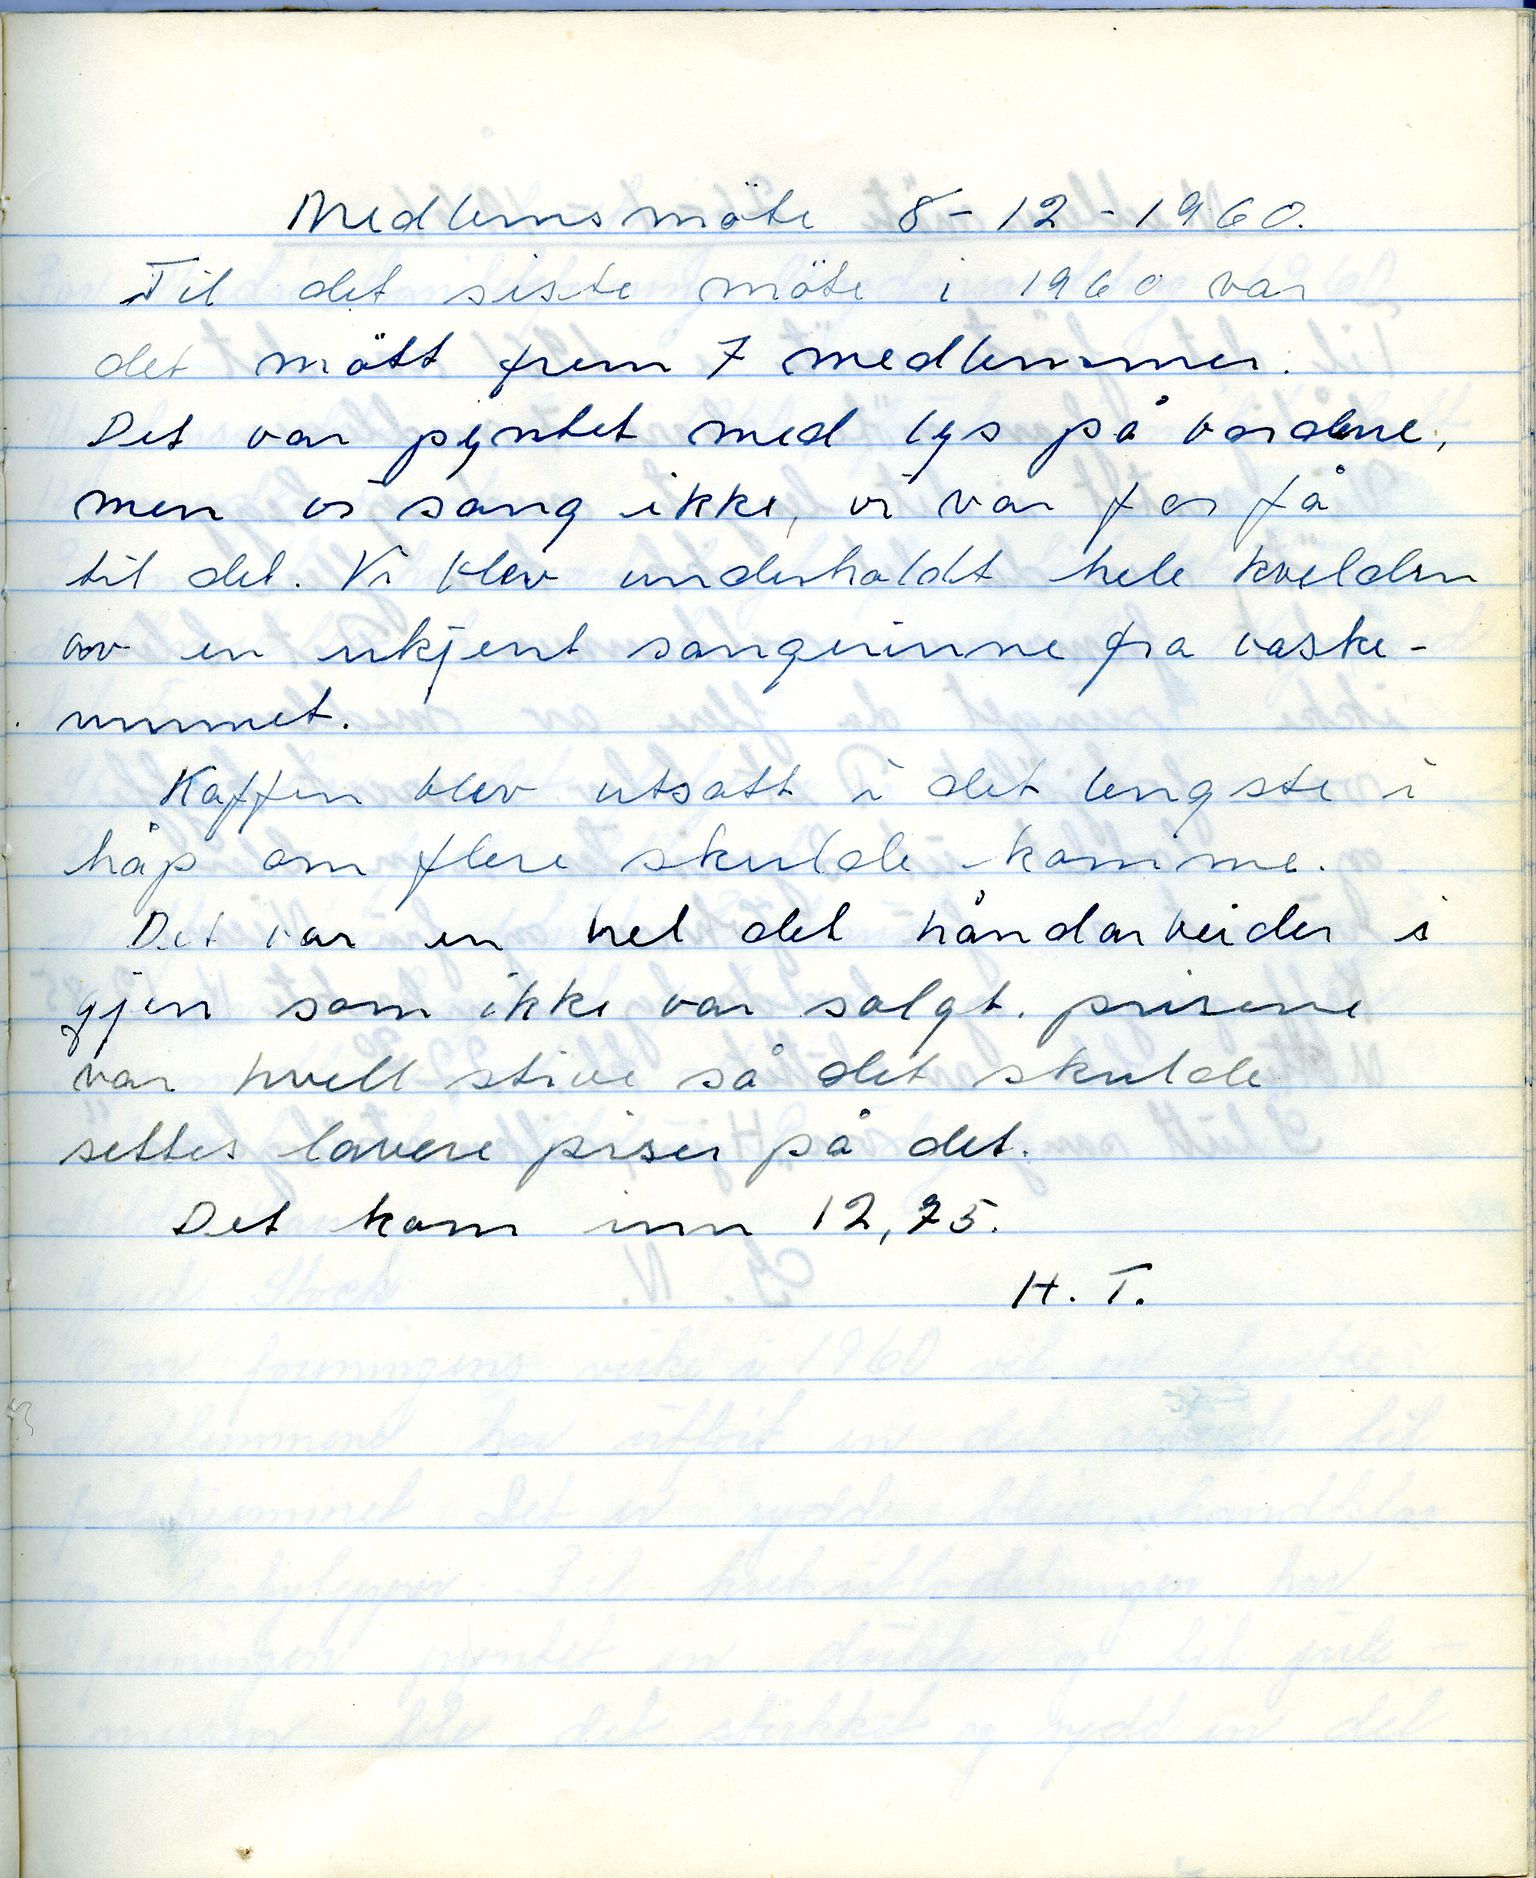 Medlemsmöte 8-12-1960.
Til det siste möte i 1960 var
det mött frem 7 medlemmer.
Det var pyntet med lys på bordene,
men vi sang ikke, vi var for få
til det. Vi blev underholdt hele kvelden
av en ukjent sangerinne fra vaske-
rummet.
Kaffen blev utsatt i det lengste i
håp om flere skulde komme.
Det var en hel del håndarbeider i
gjen som ikke var solgt. prisene
var hvell stive så det skulde
settes lavere priser på det.
Det kom inn 12,75.
H. T.